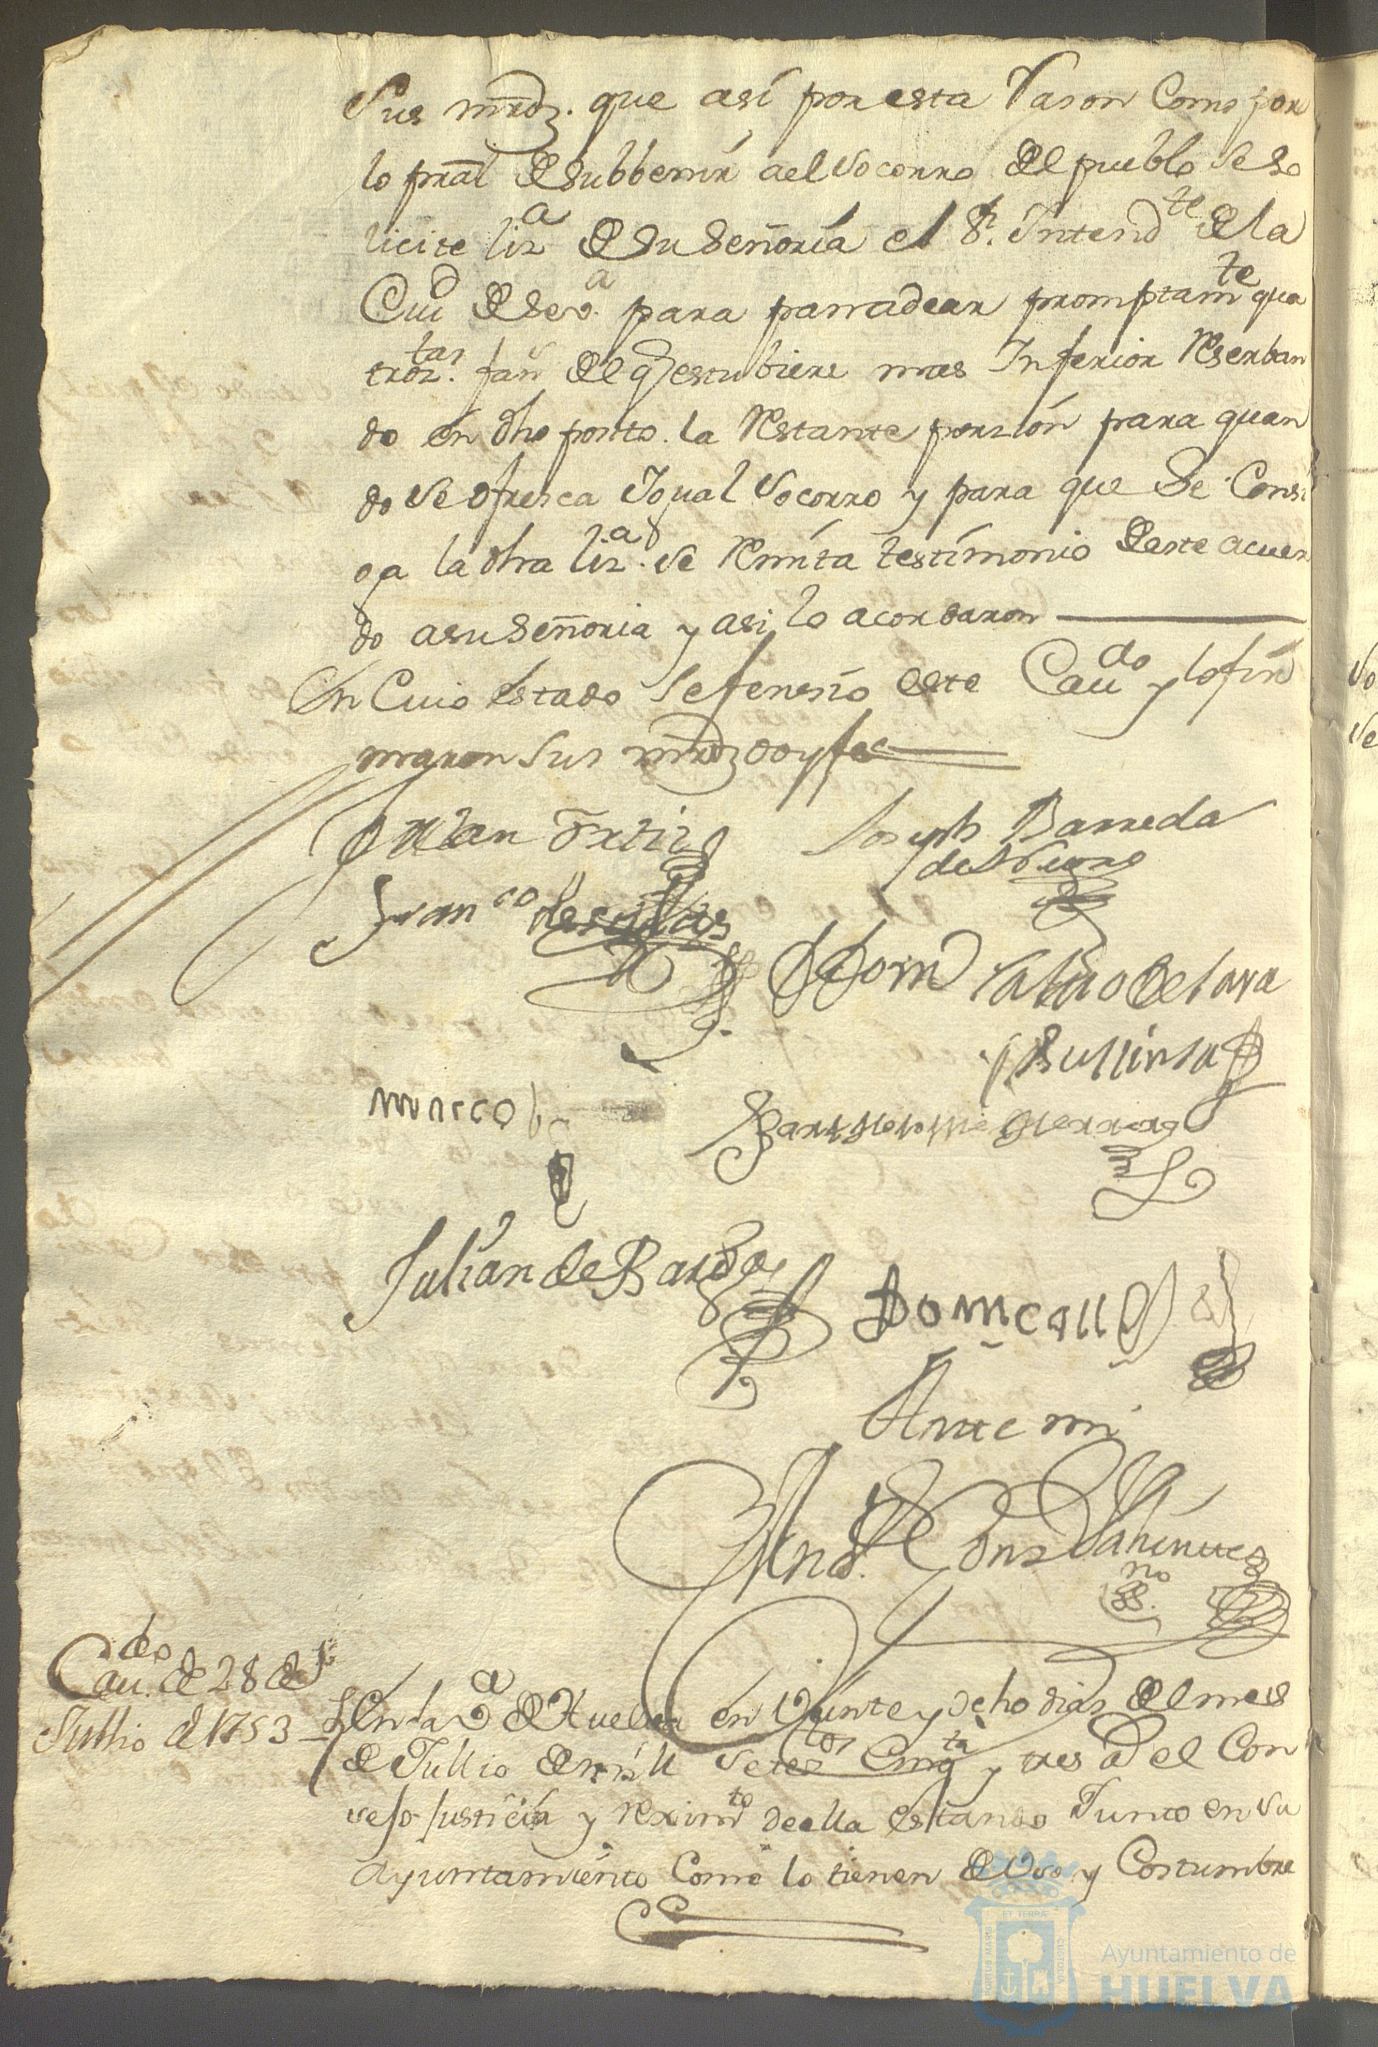 Sus mrdz. que así por esta Rason Como por
lo pral de subbenir a el Socorro de el pueblo se so
licite liza de su Señoría el Sr. Intendte de la
Ciud de Seva. para panadear promptamte qua
troztas. fans de el q estubiere mas Inferior Reserban
do en dho posito la Restante porzión para quan
do se ofresca Igual Socorro y para que se Consi
ga la dha liza. se Remita testimonio de este acuer
do a su Señoria y asi lo acordaron
En Cuio estado se fenesio este Caudo y lo fir
maron sus mrdz doy fee
Juan Ortiz
Joseph Barreda
Franco de
Dom de Lara
y Bullinsa
Marco
Bartholome Guerrero
Julian de Barda
Dom
Ante mi
no
Caudo. de 28 de
Jullio de 1753
En la Va de Huelva en Veinte y ocho dias de el mes
de Jullio de mill setesos Cinqta y tres as el Con
sejo Justicia y Reximto de ella estando Junto en su
Ayuntamiento Como lo tienen de Uso y Costumbre
Ayuntamiento de
HUELVA